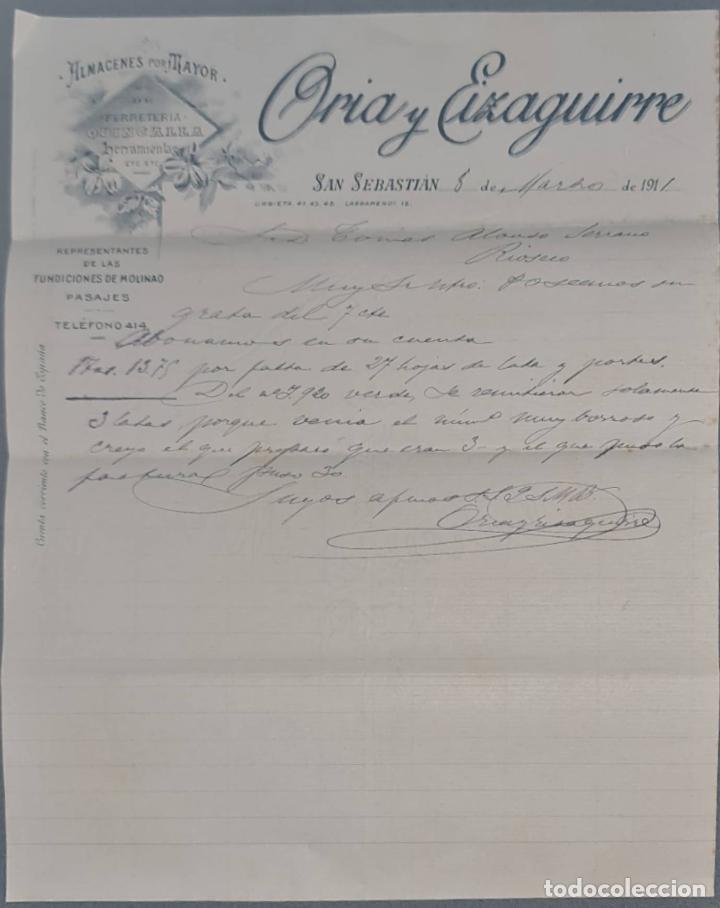 Almacenes por Mayor
DE
FERRETERIA
QUINCALLA
herramientas
ETC. ETC.
Oria y Eizaguirre
San Sebastián 8 de Marzo de 1911
URBIETA. 41. 43. 45. LARRAMENDI. 15.
REPRESENTANTES
DE LAS
FUNDICIONES DE MOLINAO
PASAJES
TELÉFONO 414
Cuenta corriente con el Banco de España
Sr. D. Tomás Alonso Serrano
Rioseco
Muy Sr. ntro: Poseemos su
grata del 7 cte
Abonamos en su cuenta
Ptas. 13.75 por falta de 27 hojas de lata y portes.
Del nº 7.920 verde, le remitieron solamente
3 latas porque venia el núm muy borroso y
creyo el que preparó que eran 3 - y el que puso la
factura puso 30
Suyos afmos S.S. Q. S. M. B.
Oria y Eizaguirre
todocoleccion.net